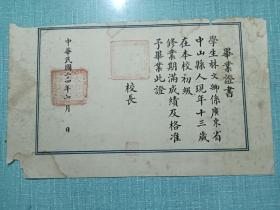 畢業證書
學生林文卿係廣東省
中山縣人現年十三歲
在本校初級
修業期滿成績及格准
予畢業此證
校長
中華民國二四年 月 日